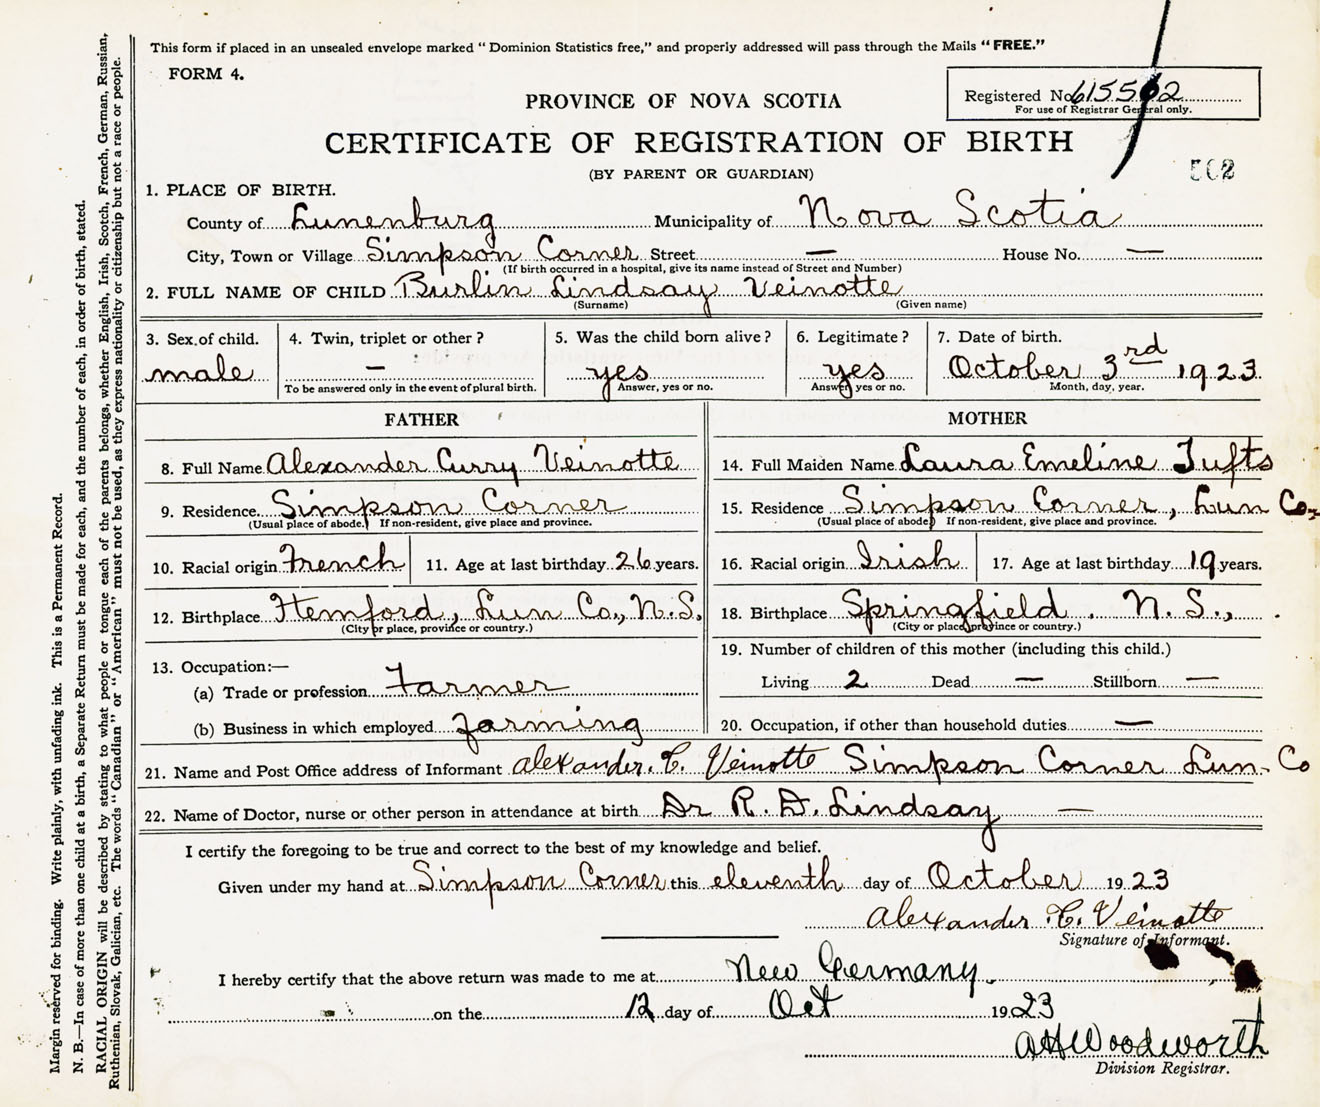 This form if placed in an unsealed envelope marked "Dominion Statistics free," and properly addressed will pass through the Mails "FREE."
FORM 4.
Registered No. 615502
For use of Registrar General only.
PROVINCE OF NOVA SCOTIA
CERTIFICATE OF REGISTRATION OF BIRTH
(BY PARENT OR GUARDIAN)
502
1. PLACE OF BIRTH.
County of Lunenburg Municipality of Nova Scotia
City, Town or Village Simpson Corner Street — House No. —
(If birth occurred in a hospital, give its name instead of Street and Number)
2. FULL NAME OF CHILD Burlin Lindsay Veinotte
(Surname) (Given name)
3. Sex of child. 4. Twin, triplet or other? 5. Was the child born alive? 6. Legitimate? 7. Date of birth.
male — yes yes October 3rd 1923
To be answered only in the event of plural birth. Answer, yes or no. Answer, yes or no. Month, day, year.
FATHER
8. Full Name Alexander Curry Veinotte
9. Residence Simpson Corner
(Usual place of abode.) If non-resident, give place and province.
10. Racial origin French 11. Age at last birthday 26 years.
12. Birthplace Hemford, Lun Co., N.S.
(City or place, province or country.)
13. Occupation:—
(a) Trade or profession Farmer
(b) Business in which employed Farming
MOTHER
14. Full Maiden Name Laura Emeline Tufts
15. Residence Simpson Corner, Lun Co.
(Usual place of abode) If non-resident, give place and province.
16. Racial origin Irish 17. Age at last birthday 19 years.
18. Birthplace Springfield. N.S.,
(City or place, province or country.)
19. Number of children of this mother (including this child.)
Living 2 Dead — Stillborn —
20. Occupation, if other than household duties —
21. Name and Post Office address of Informant Alexander. C. Veinotte Simpson Corner Lun. Co
22. Name of Doctor, nurse or other person in attendance at birth Dr R. D. Lindsay —
I certify the foregoing to be true and correct to the best of my knowledge and belief.
Given under my hand at Simpson Corner this eleventh day of October 1923
Alexander C. Veinotte
Signature of Informant.
I hereby certify that the above return was made to me at New Germany.
on the 12 day of Oct 1923
AHWoodworth
Division Registrar.
Margin reserved for binding. Write plainly, with unfading ink. This is a Permanent Record.
N. B.—In case of more than one child at a birth, a Separate Return must be made for each, and the number of each, in order of birth, stated.
RACIAL ORIGIN will be described by stating to what people or tongue each of the parents belongs, whether English, Irish, Scotch, French, German, Russian,
Ruthenian, Slovak, Galician, etc. The words "Canadian" or "American" must not be used, as they express nationality or citizenship but not a race or people.